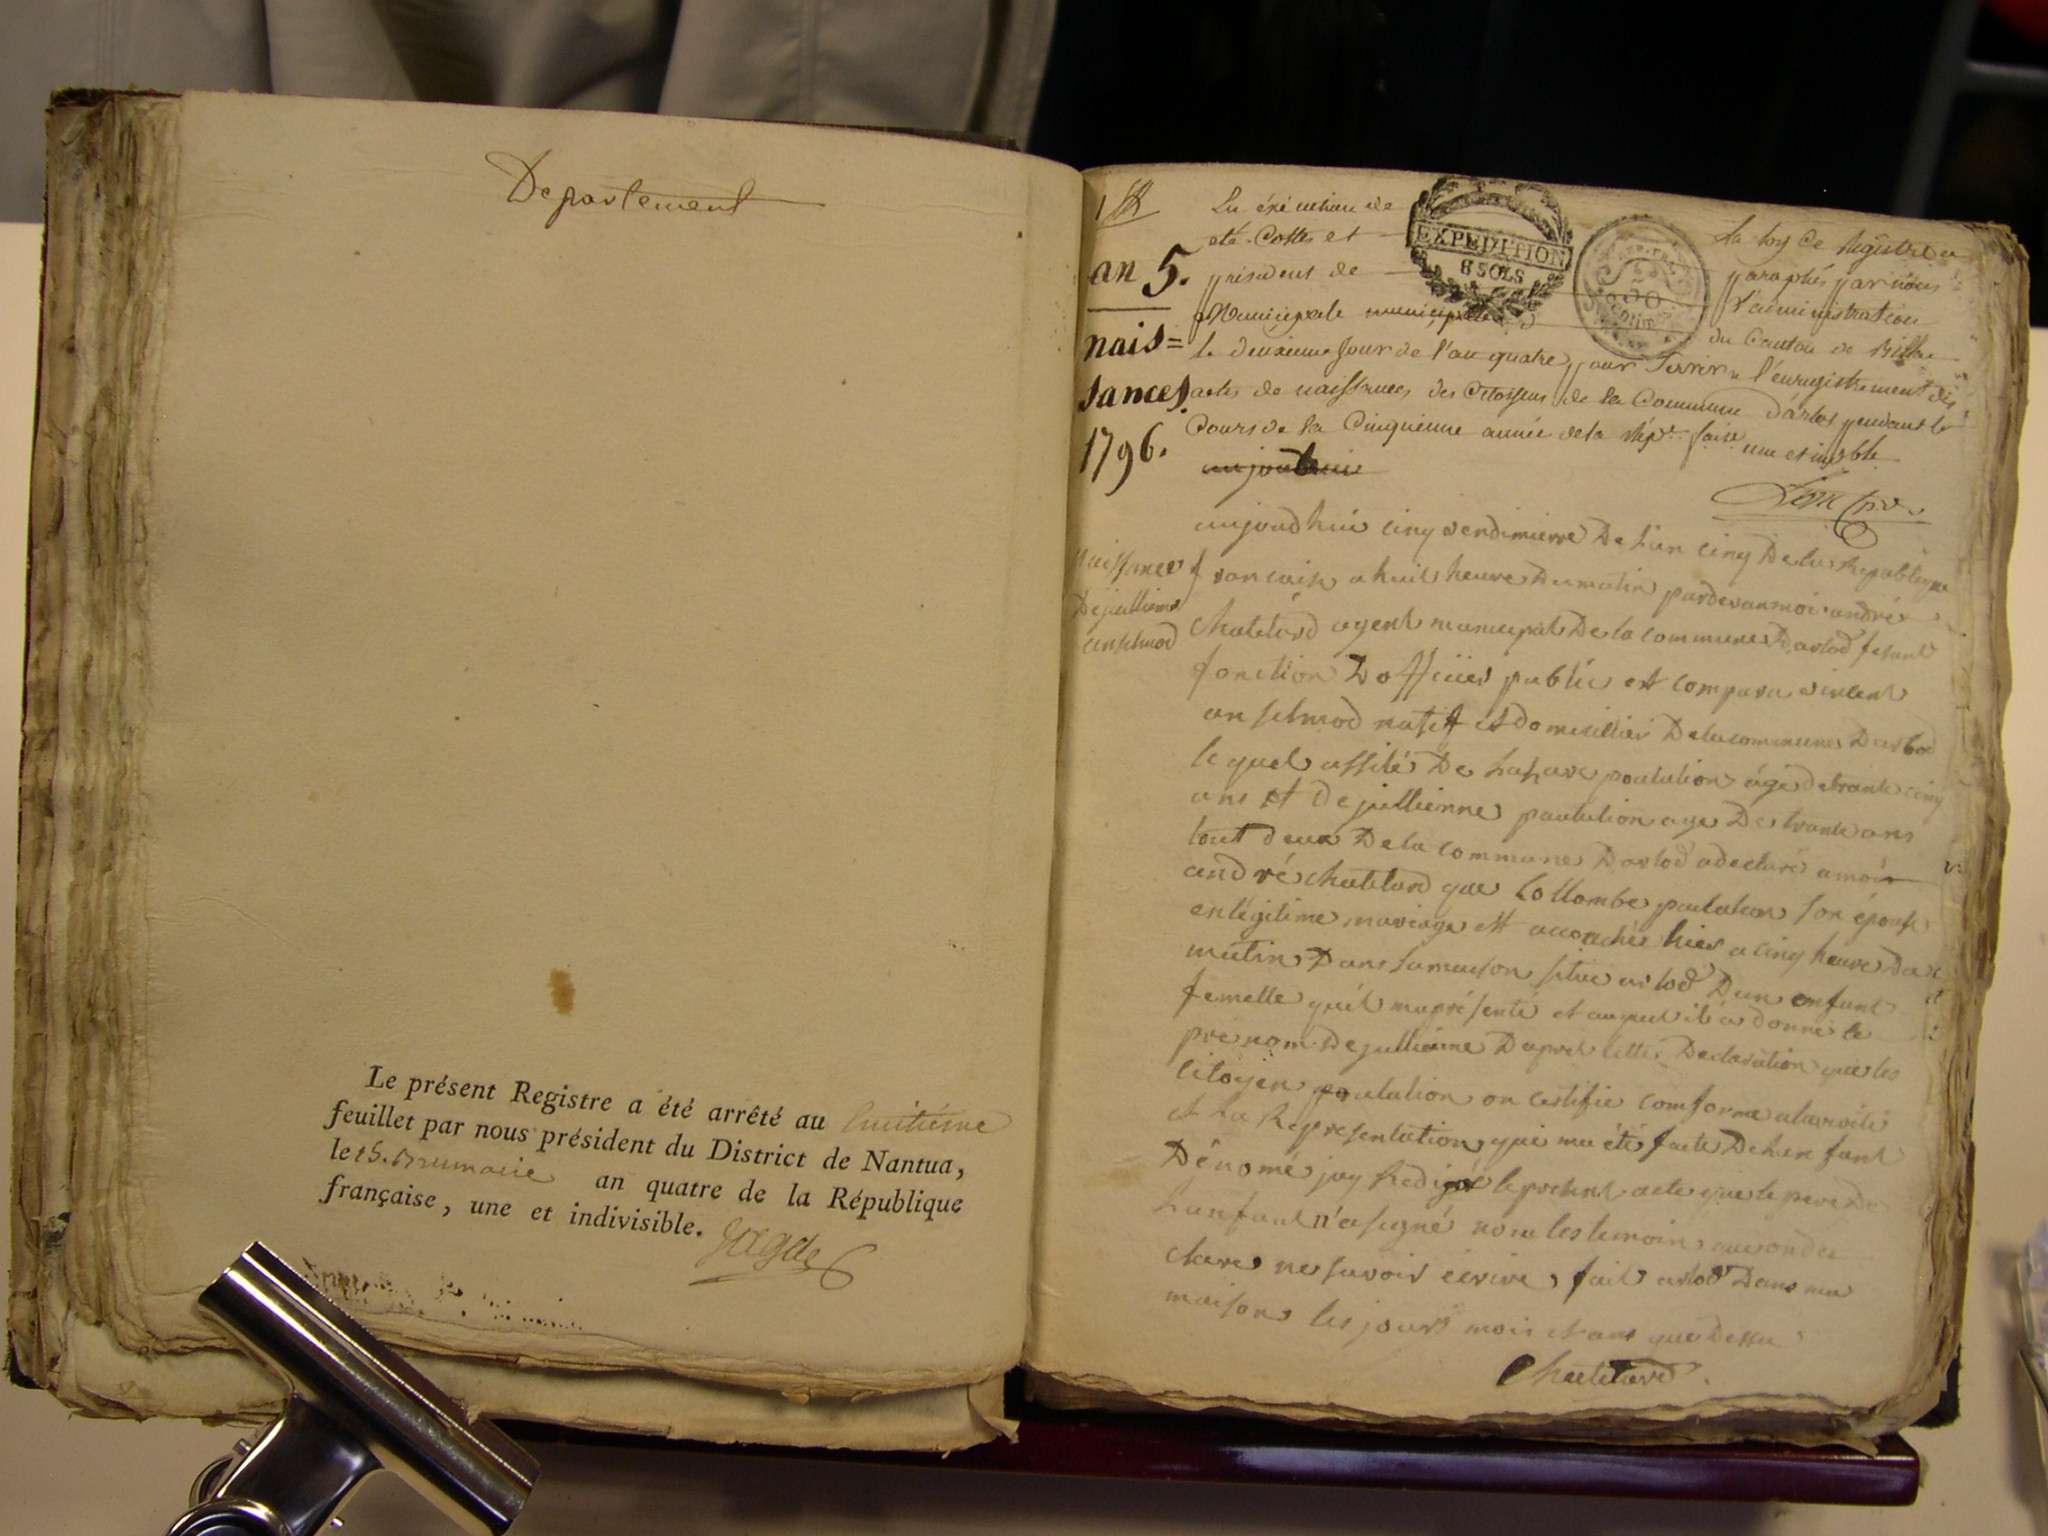 Departement
Le présent Registre a été arrêté au huitiéme
feuillet par nous président du District de Nantua,
le 15. Brumaire an quatre de la République
française, une et indivisible.
1
En éxécution de la loy ce Registre a
été Cottés et paraphés par nous
président de l'administration
Municipale municipale du Canton de
le deuxieme Jour de l'an quatre pour Servir a l'enregistrement des
actes de naissances des Citoyens de la Commune d'arlod pendant le
Cours de la Cinquieme année de la Rep.e fse une et
aujourdhui
EXPEDITION
8 SOLS
50
centim
an 5.
nais=
sances.
1796.
naissance
De jullienne
anselmod
aujourdhui cinq vendimierre De lan cinq De la Republique
francaise a huit heure Du matin pardevan moi andré
Chatelard agent municipal De la commune Darlod fesant
fonction Dofficier public est comparu vincent
anselmod natif et domicillier De la commune Darlod
lequel assité De poulation agé de trante cinq
ans et De jullienne poulation age De trante ans
tout deux De la commune Darlod a declaré a moi
andré chatelard que Collombe poulation son épouse
en légitime mariage est accouchée hier a cinq heure Du
matin Dans sa maison situe arlod Dun enfant
femelle quil ma présenté et auquel il a donné le
prénom De jullienne Dapres cette Declaration que les
citoyen poulation on certifie comforme a la verité
et la Representation qui ma été faite De lenfant
Dénomé jay Redigé le present acte que le pere De
lanfant n'a signé non les temoin on de
claré ne savoir écrire, fait arlod Dans ma
maison les jours mois et ans que Dessu
Chatelard